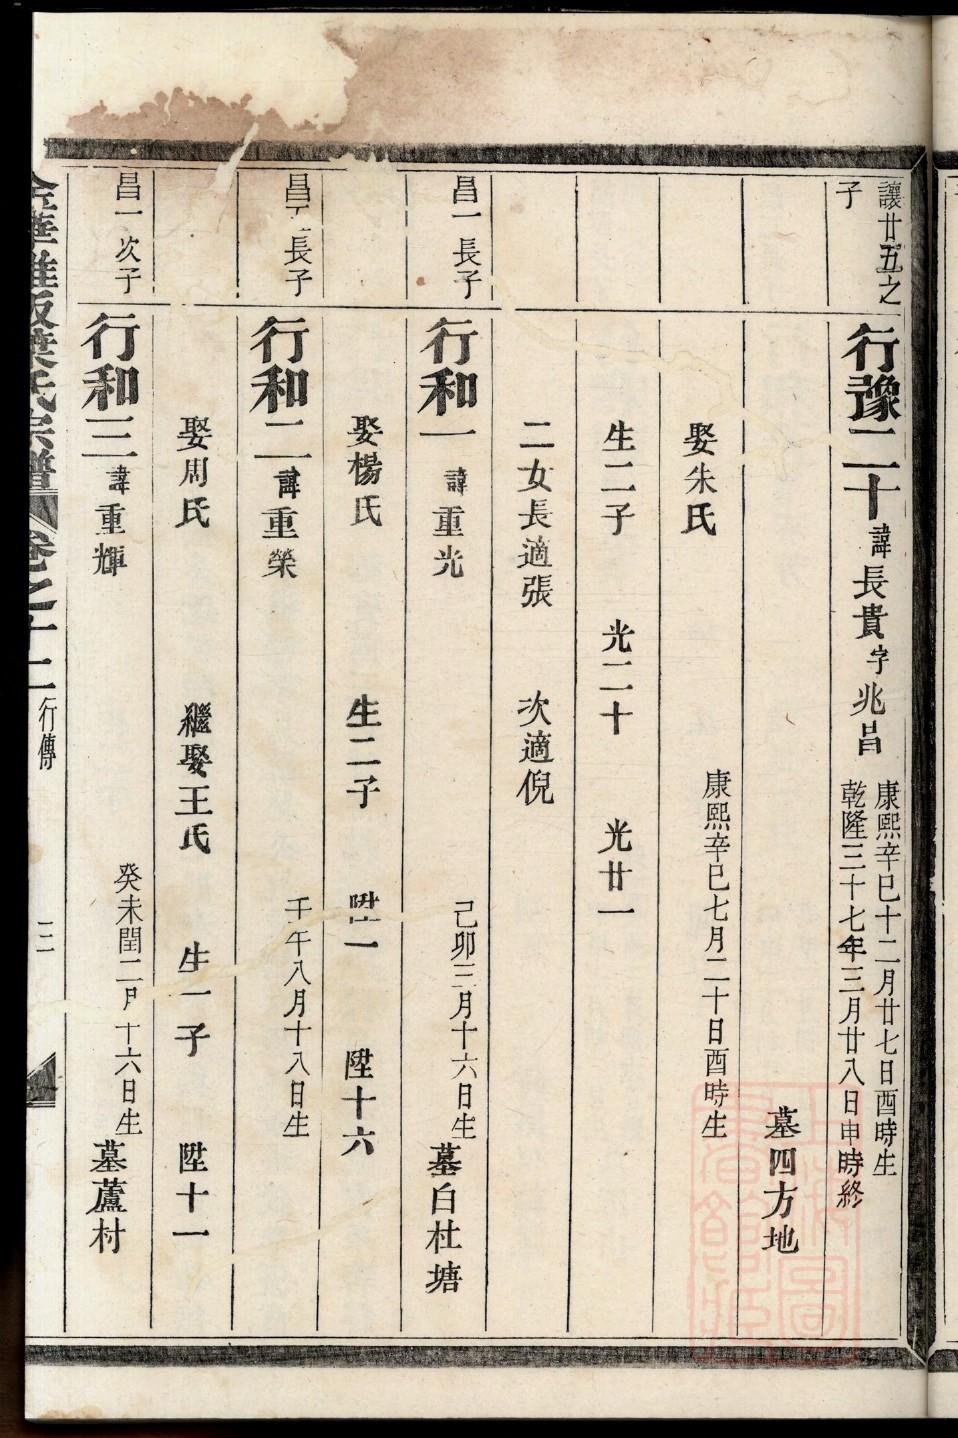 讓廿五之子
行豫二十諱長貴字兆昌 康熙辛巳十二月廿七日酉時生
乾隆三十七年三月廿八日申時終
墓四方地
娶朱氏 康熙辛巳七月二十日酉時生
生二子 光二十 光廿一
二女長適張 次適倪
昌一長子
行和一諱重光 己卯三月十六日生 墓白杜塘
娶楊氏 生二子 陞一 陞十六
長子
行和二諱重榮 壬午八月十八日生
娶周氏 繼娶王氏 生一子 陞十一
昌一次子
行和三諱重輝 癸未閏二月十六日生 墓蘆村
葉氏宗譜 卷之十二 行傳 三